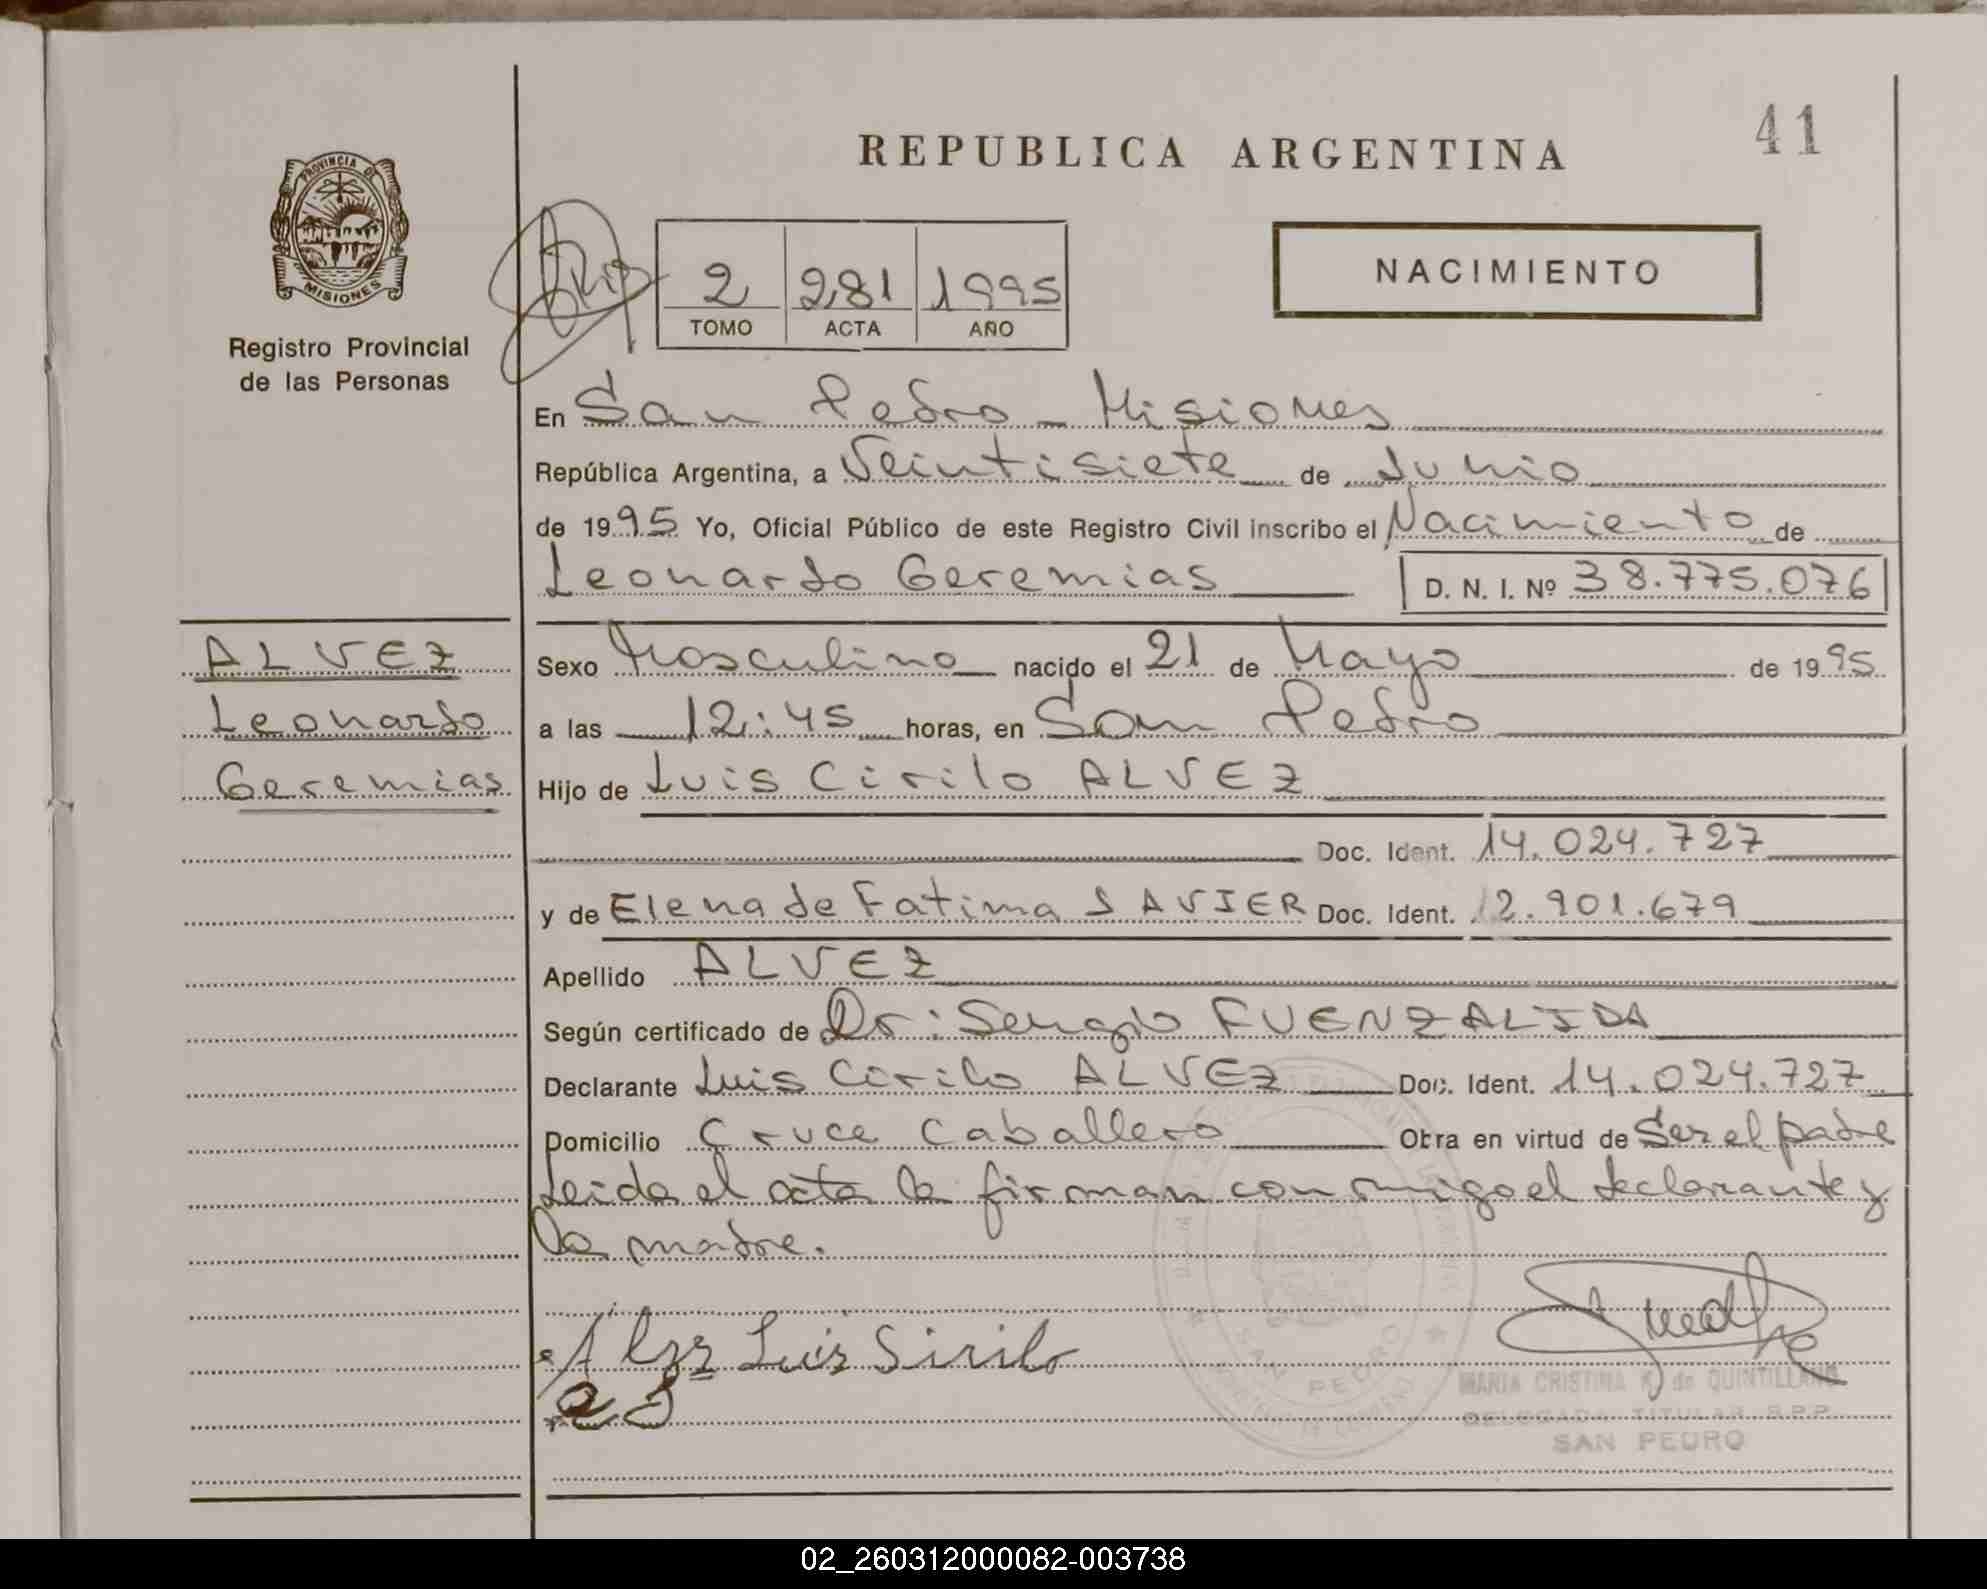 41
REPUBLICA ARGENTINA
PROVINCIA DE
MISIONES
Registro Provincial
de las Personas
2 281 1995
TOMO ACTA AÑO
NACIMIENTO
En San Pedro - Misiones
República Argentina, a Veintisiete de Junio
de 1995 Yo, Oficial Público de este Registro Civil inscribo el Nacimiento de
Leonardo Geremias D. N. I. Nº 38.775.076
ALVEZ
Leonardo
Geremias
Sexo Masculino nacido el 21 de Mayo de 1995
a las 12:45 horas, en San Pedro
Hijo de Luis Cirilo ALVEZ
Doc. Ident. 14.024.727
y de Elena de Fatima SAVIER Doc. Ident. 12.901.679
Apellido ALVEZ
Según certificado de Dr: Sergio FUENZALIDA
Declarante Luis Cirilo ALVEZ Doc. Ident. 14.024.727
Domicilio Cruce Caballero Obra en virtud de Ser el padre
Leida el acta la firman conmigo el declarante y
la madre.
Luis Sirilo
SAN PEDRO
MARIA CRISTINA K. de QUINTILLANO
DELEGADA TITULAR R.P.P.
SAN PEDRO
02_260312000082-003738